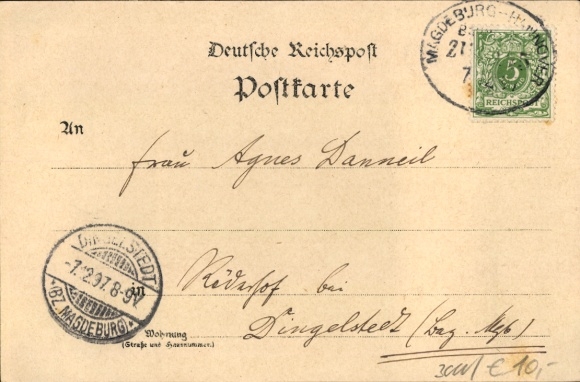 Deutsche Reichspost
Postkarte
MAGDEBURG-HANNOVER
7
5
REICHSPOST
An
Frau Agnes Danneil
DINGELSTEDT
-7.12.97. 8-9
(BZ. MAGDEBURG)
in
Röderhof bei
Dingelstedt (Bez. Mgb)
Wohnung
(Straße und Hausnummer.)
€ 10,-